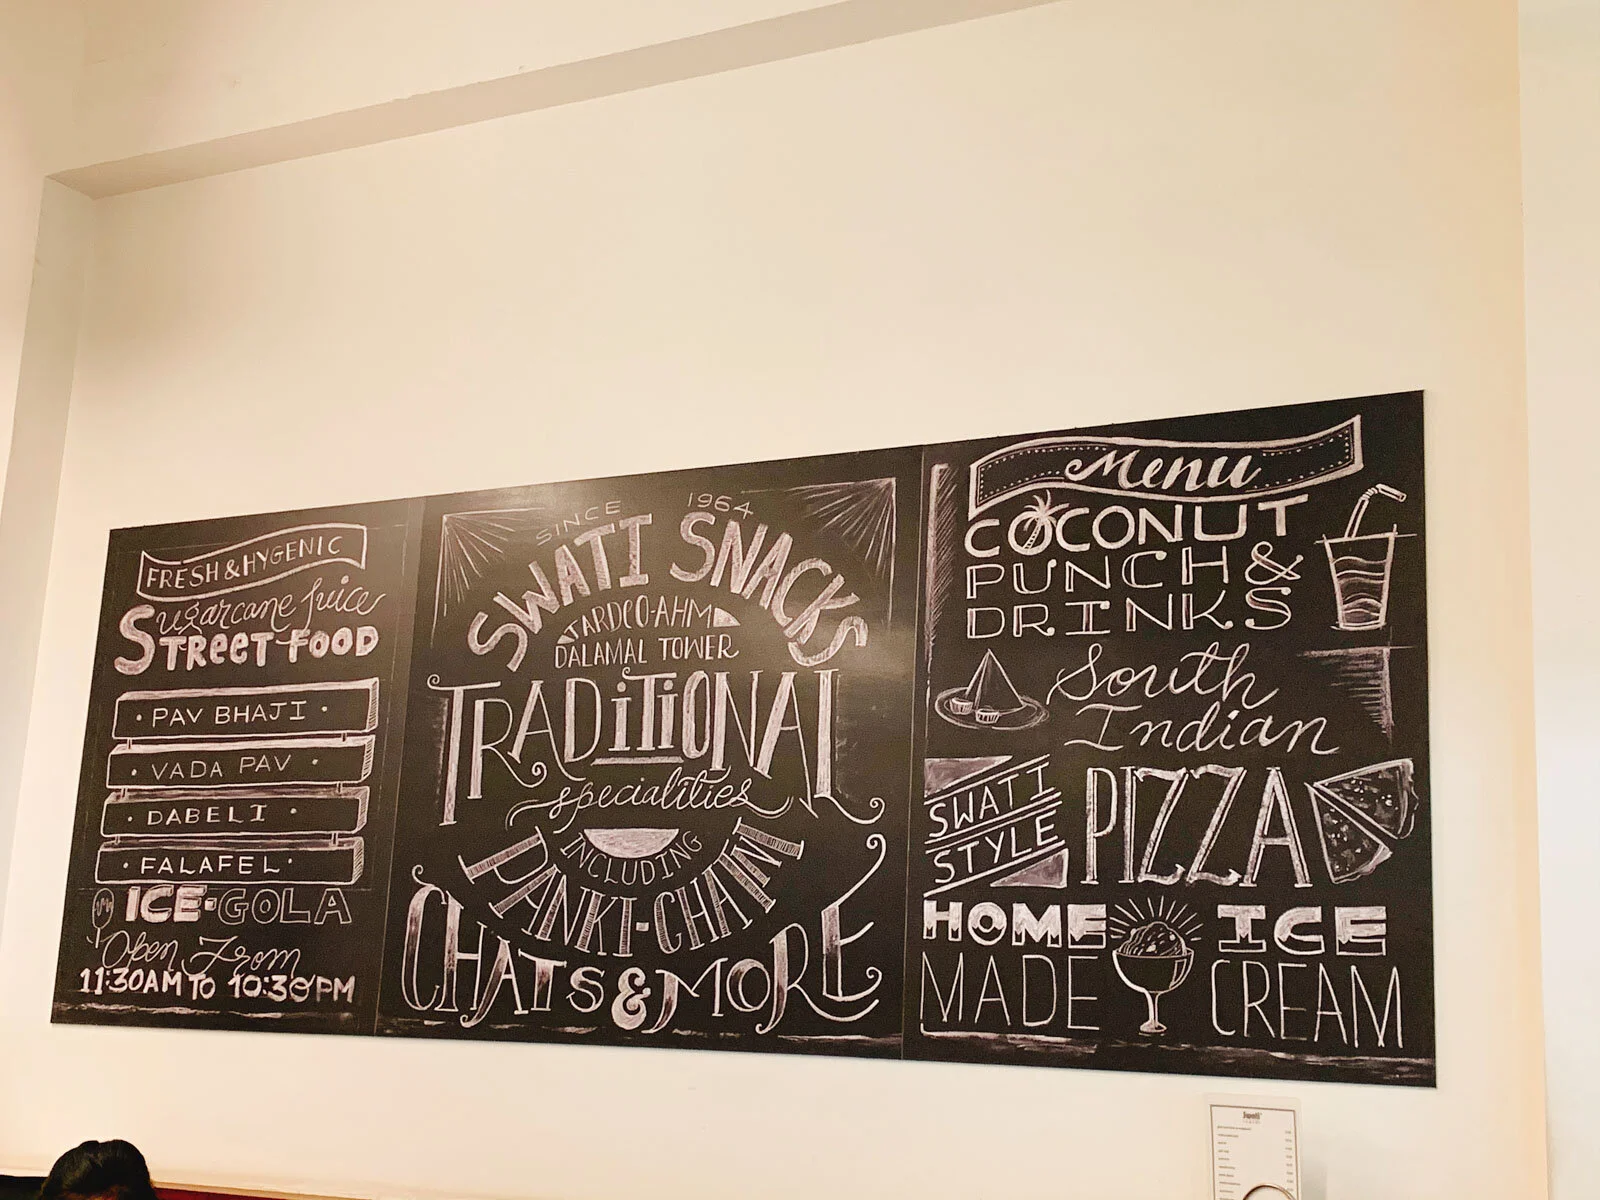 FRESH & HYGENIC
Sugarcane Juice
STREET FOOD
· PAV BHAJI ·
· VADA PAV ·
· DABELI ·
· FALAFEL ·
ICE-GOLA
Open From
11:30AM TO 10:30PM
SINCE 1964
SWATI SNACKS
TARDEO-AHM
DALAMAL TOWER
TRADITIONAL
specialities
INCLUDING
PANKI-CHATNI
CHATS & MORE
Menu
COCONUT
PUNCH &
DRINKS
South
Indian
SWATI
STYLE
PIZZA
HOME ICE
MADE CREAM
Swati